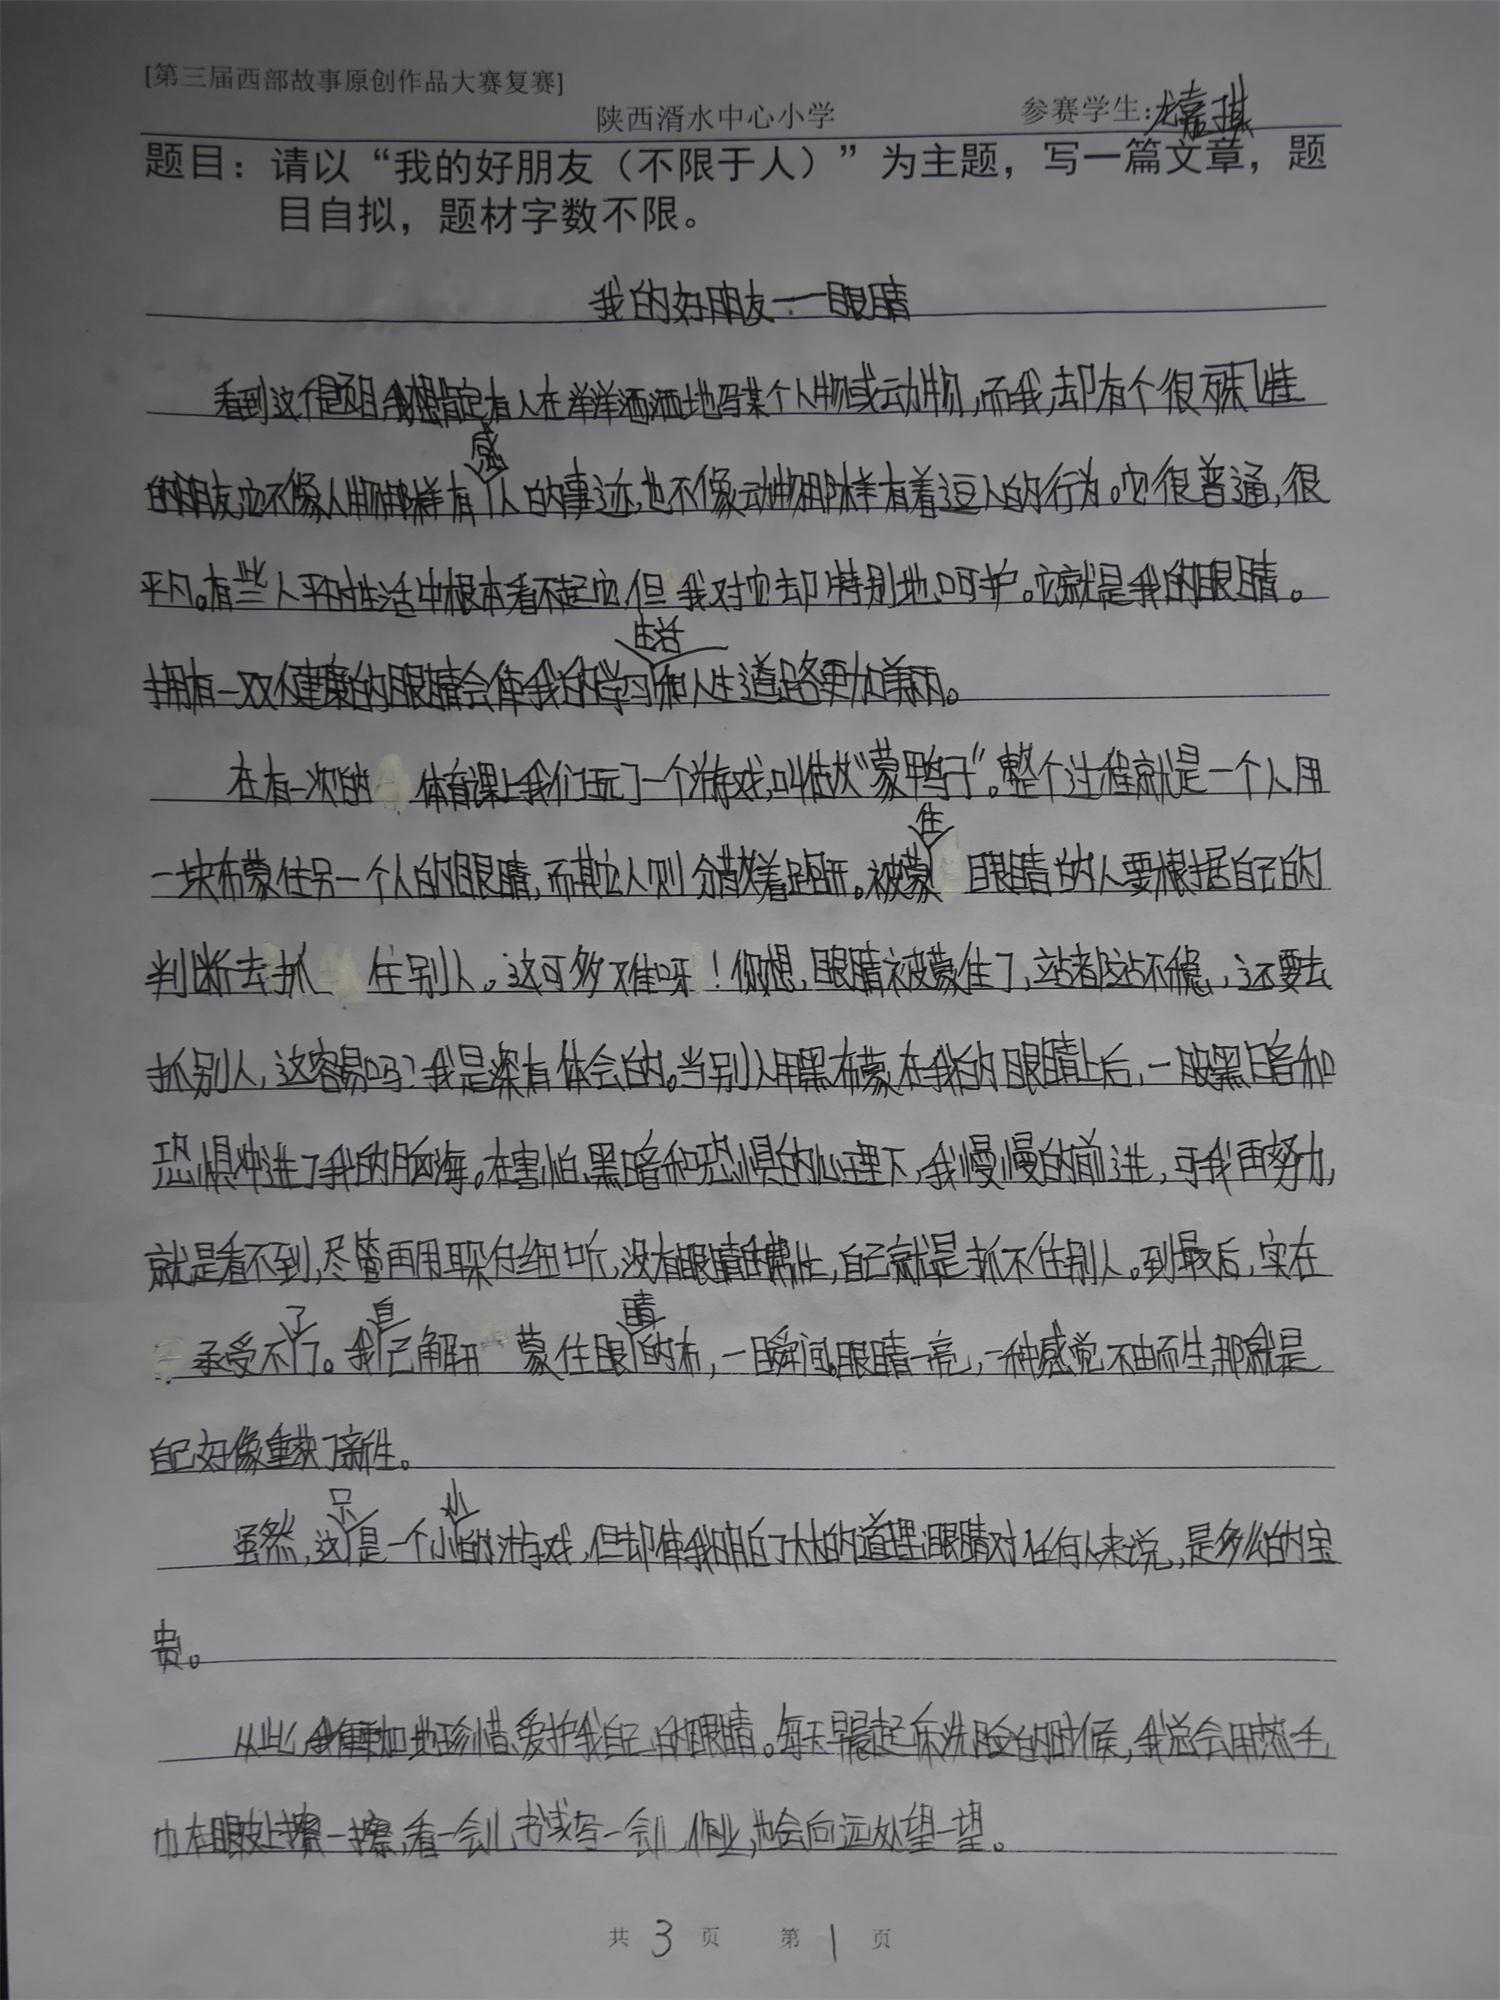 [第三届西部故事原创作品大赛复赛]
陕西湑水中心小学 参赛学生:龙嘉琪
题目：请以“我的好朋友（不限于人）”为主题，写一篇文章，题
目自拟，题材字数不限。
我的好朋友——眼睛
看到这个题目我想肯定有人在洋洋洒洒地写某个人物或动物,而我,却有个很殊
的朋友,它不像人物那样有感人的事迹,也不像动物那样有着逗人的行为。它很普通,很
平凡。有些人平时生活中根本看不起它,但我对它却特别地呵护。它就是我的眼睛。
拥有一双健康的眼睛会使我的学习生活和人生道路更加美丽。
在有一次的体育课上我们玩了一个游戏,叫做“蒙鸭子”。整个过程就是一个人用
一块布蒙住另一个人的眼睛,而其它人则分散着跑开。被蒙住眼睛的人要根据自己的
判断去抓住别人。这可多不难呀!你想,眼睛被蒙住了,站都站不稳,还要去
抓别人,这容易吗?我是深有体会的。当别人用黑布蒙在我的眼睛上后,一股黑暗和
恐惧冲进了我的脑海。在害怕、黑暗和恐惧的心理下,我慢慢的前进,可我再努力,
就是看不到,尽管再用耳朵仔细听,没有眼睛的帮忙,自己就是抓不住别人。到最后,实在
承受不了了。我自己解开蒙住眼睛的布,一瞬间。眼睛一亮,一种感觉不由而生,那就是
自己好像重获了新生。
虽然,这只是一个小小的游戏,但却使我明白了大大的道理:眼睛对任何人来说,是多么的宝
贵。
从此,我更加地珍惜、爱护我自己的眼睛。每天早晨起床洗脸的时候,我总会用热手
巾在眼皮上擦一擦,看一会儿书或写一会儿作业,也会向远处望一望。
共 3 页 第 1 页